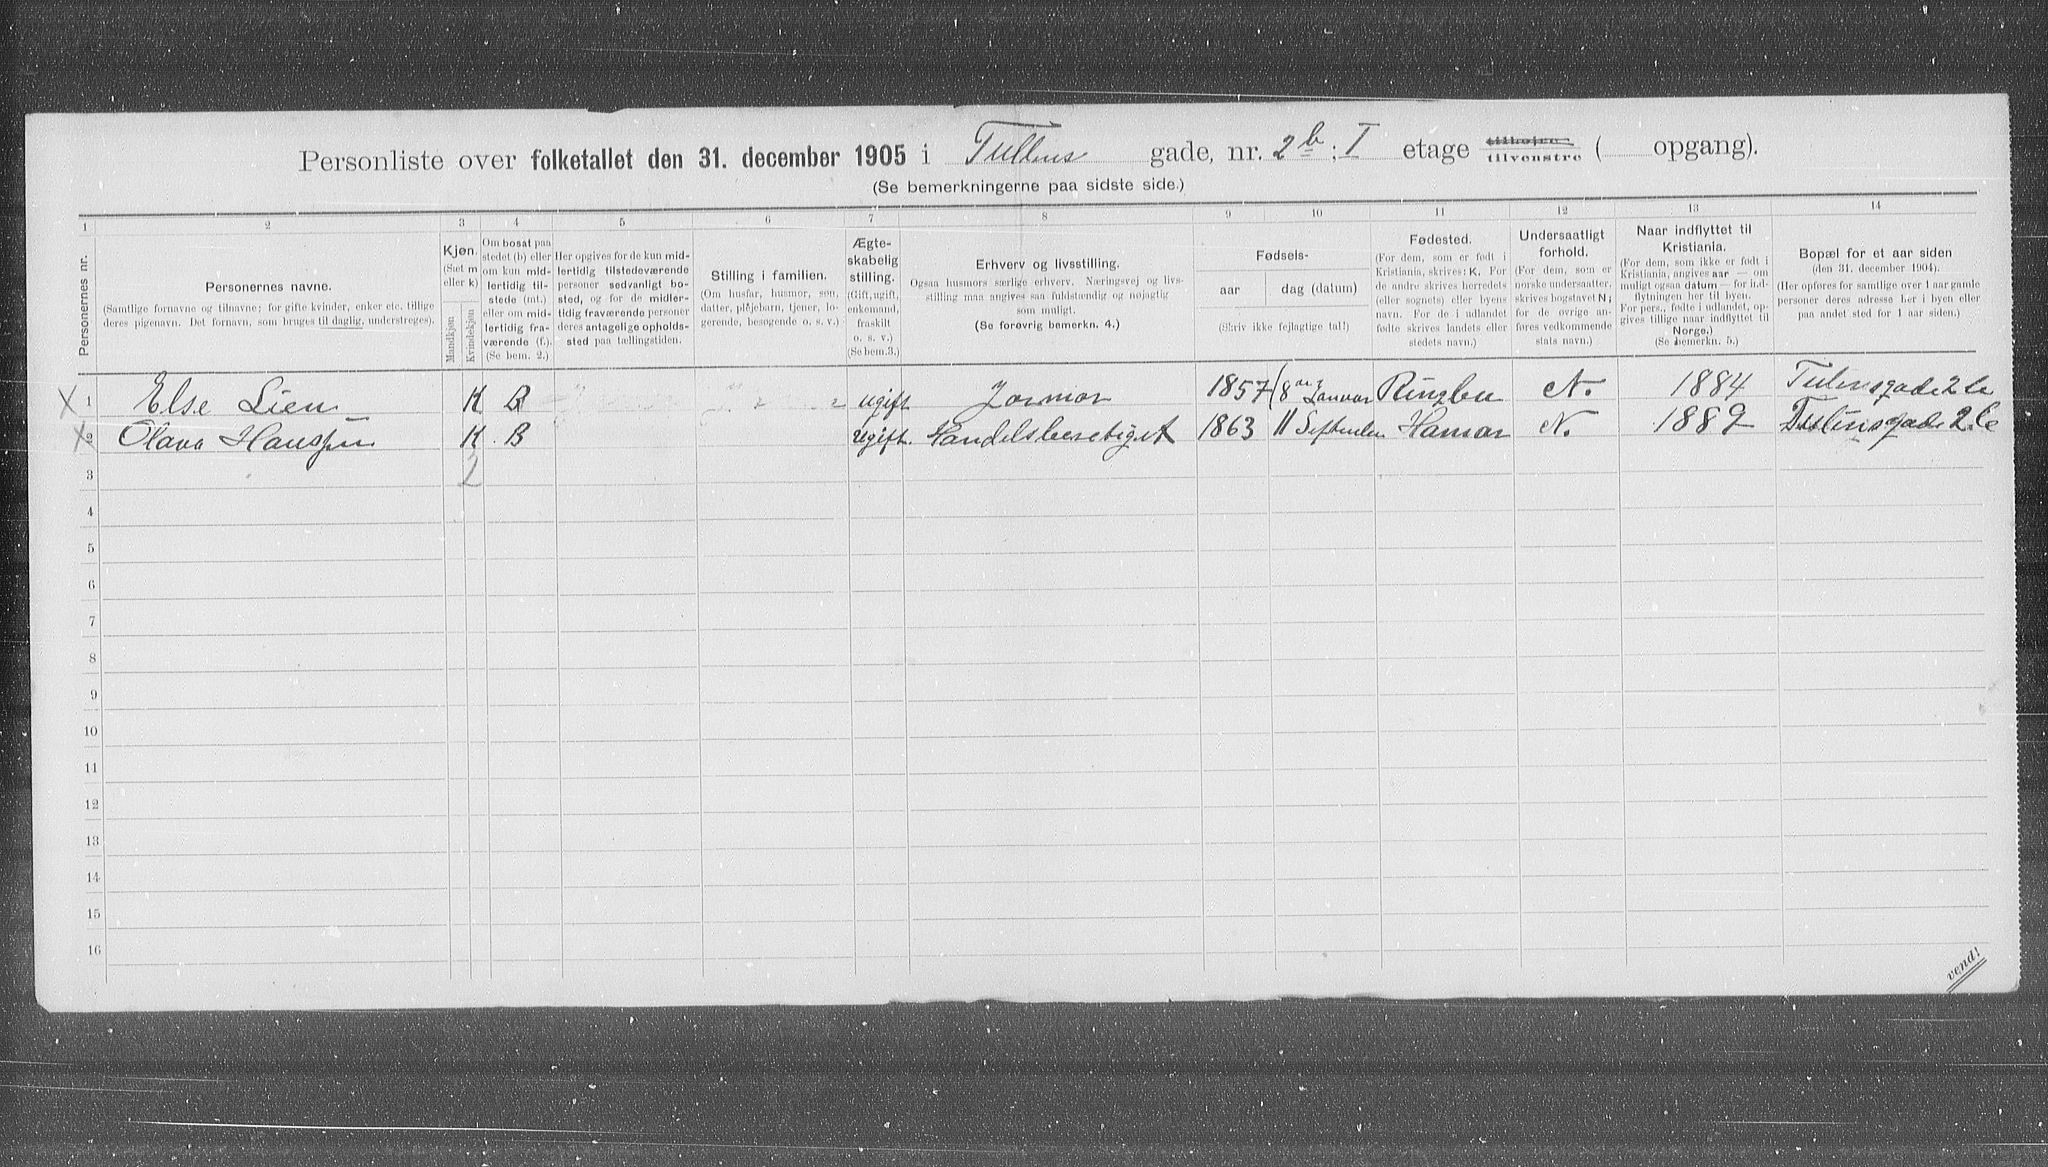 Personliste over folketallet den 31. december 1905 i Tullins gade, nr. 2b; I etage tilhøjre tilvenstre ( opgang).
(Se bemerkningerne paa sidste side.)
1 2 3 4 5 6 7 8 9 10 11 12 13 14
Personernes nr.
Personernes navne.
(Samtlige fornavne og tilnavne; for gifte kvinder, enker etc. tillige
deres pigenavn. Det fornavn, som bruges til daglig, understreges).
Kjøn.
(Sæt m
eller k)
Mandkjøn
Kvindekjøn
Om bosat paa
stedet (b) eller
om kun mid-
lertidig til-
stede (mt.)
eller om mid-
lertidig fra-
værende (f.).
(Se bem. 2.)
Her opgives for de kun mid-
lertidig tilstedeværende
personer sedvanligt bo-
sted, og for de midler-
tidig fraværende personer
deres antagelige opholds-
sted paa tællingstiden.
Stilling i familien.
(Om husfar, husmor, søn,
datter, plejebarn, tjener, lo-
gerende, besøgende o. s. v.)
Ægte-
skabelig
stilling.
(Gift, ugift,
enkemand,
fraskilt
o. s. v.)
(Se bem.3.)
Erhverv og livsstilling.
Ogsaa husmors særlige erhverv. Næringsvej og livs-
stilling maa angives saa fuldstændig og nøjagtig
som muligt.
(Se forøvrig bemerkn. 4.)
Fødsels-
aar dag (datum)
(Skriv ikke fejlagtige tal!)
Fødested.
(For dem, som er født i
Kristiania, skrives: K. For
de andre skrives herredets
(eller sognets) eller byens
navn. For de i udlandet
fødte skrives landets eller
stedets navn.)
Undersaatligt
forhold.
(For dem, som er
norske undersaatter,
skrives bogstavet N;
for de øvrige an-
føres vedkommende
stats navn.)
Naar indflyttet til
Kristiania.
(For dem, som ikke er født i
Kristiania, angives aar — om
muligt ogsaa datum — for ind-
flytningen her til byen.
For pers., fødte i udlandet, op-
gives tillige naar indflyttet til
Norge.)
(Se bemerkn. 5.)
Bopæl for et aar siden
(den 31. december 1904).
(Her opføres for samtlige over 1 aar gamle
personer deres adresse her i byen eller
paa andet sted for 1 aar siden.)
X 1 Else Lien K B ugift Jormor 1857 Januar Ringbu N. 1884 Tulinsgade 2 b
X 2 Olava Hanssen K. B ugift. Handelsberetiget 1863 11 September Hamar N. 1889 Tulinsgade 2 b
3 2
4
5
6
7
8
9
10
11
12
13
14
15
16
vend!